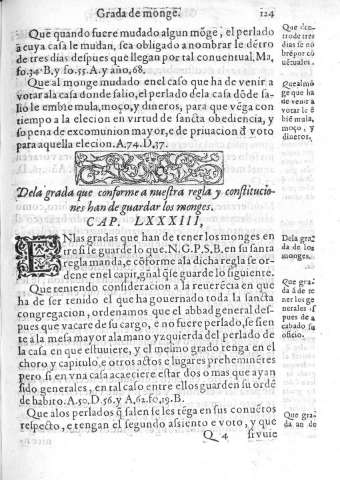 Grada de monge. 124
Que quando fuere mudado algun môge, el perlado
à cuya casa le mudan, sea obligado a nombrar le détro
de tres dias despues que llegan por tal conuentual, Ma,
fo.34.B,y fo.55.A.y año,68.
Que al monge mudado en el caso que ha de venir a
votar ala casa donde salio, el perlado dela casa dôde sa-
lio le embie mula, moço, y dineros, para que vega con
tiempo a la elecion en virtud de sancta obediencia, y
so pena de excomunion mayor, e de priuacion d̃ voto
para aquella elecion. A,74.D,37.
Dela grada que conforme a nuestra regla y constitucio-
nes han de guardar los monges.
CAP. LXXXIII,
ENlas gradas que han de tener los monges en
tre si se guarde lo que. N.G.P.S.B, en su santa
regla manda, e côforme ala dicha regla se or-
dene en el capit, gñal q̃ se guarde lo siguiente.
Que teniendo consideracion a la reuerécia en que
ha de ser tenido el que ha gouernado toda la sancta
congregacion, ordenamos que el abbad general des-
pues que vacare de su cargo, e no fuere perlado, se sien
te à la mesa mayor ala mano yzquierda del perlado de
la casa en que estuuiere, y el mesmo grado tenga en el
choro y capitulo, e otros actos e lugares preheminétes
pero si en vna casa acaeciere estar dos o mas que ayan
sido generales, en tal caso entre ellos guarden su ordé
de habito. A.50.D.56.y A,62.fo,19.B.
Que alos perlados q̃ salen se les téga en sus conuétos
respecto, e tengan el segundo assiento e voto, y que
Q 4 siruie
Que den-
trode tres
dias se nô
bre por cô
uétuales.
Que al mô
ge que ha
de venir a
votar le é
bié mula,
moço, y
dineros,
Dela gra
da de los
monges.
Que gra-
da à de te
ner los ge
nerales
pues de a
cabado su
oficio.
Que gra-
da an de